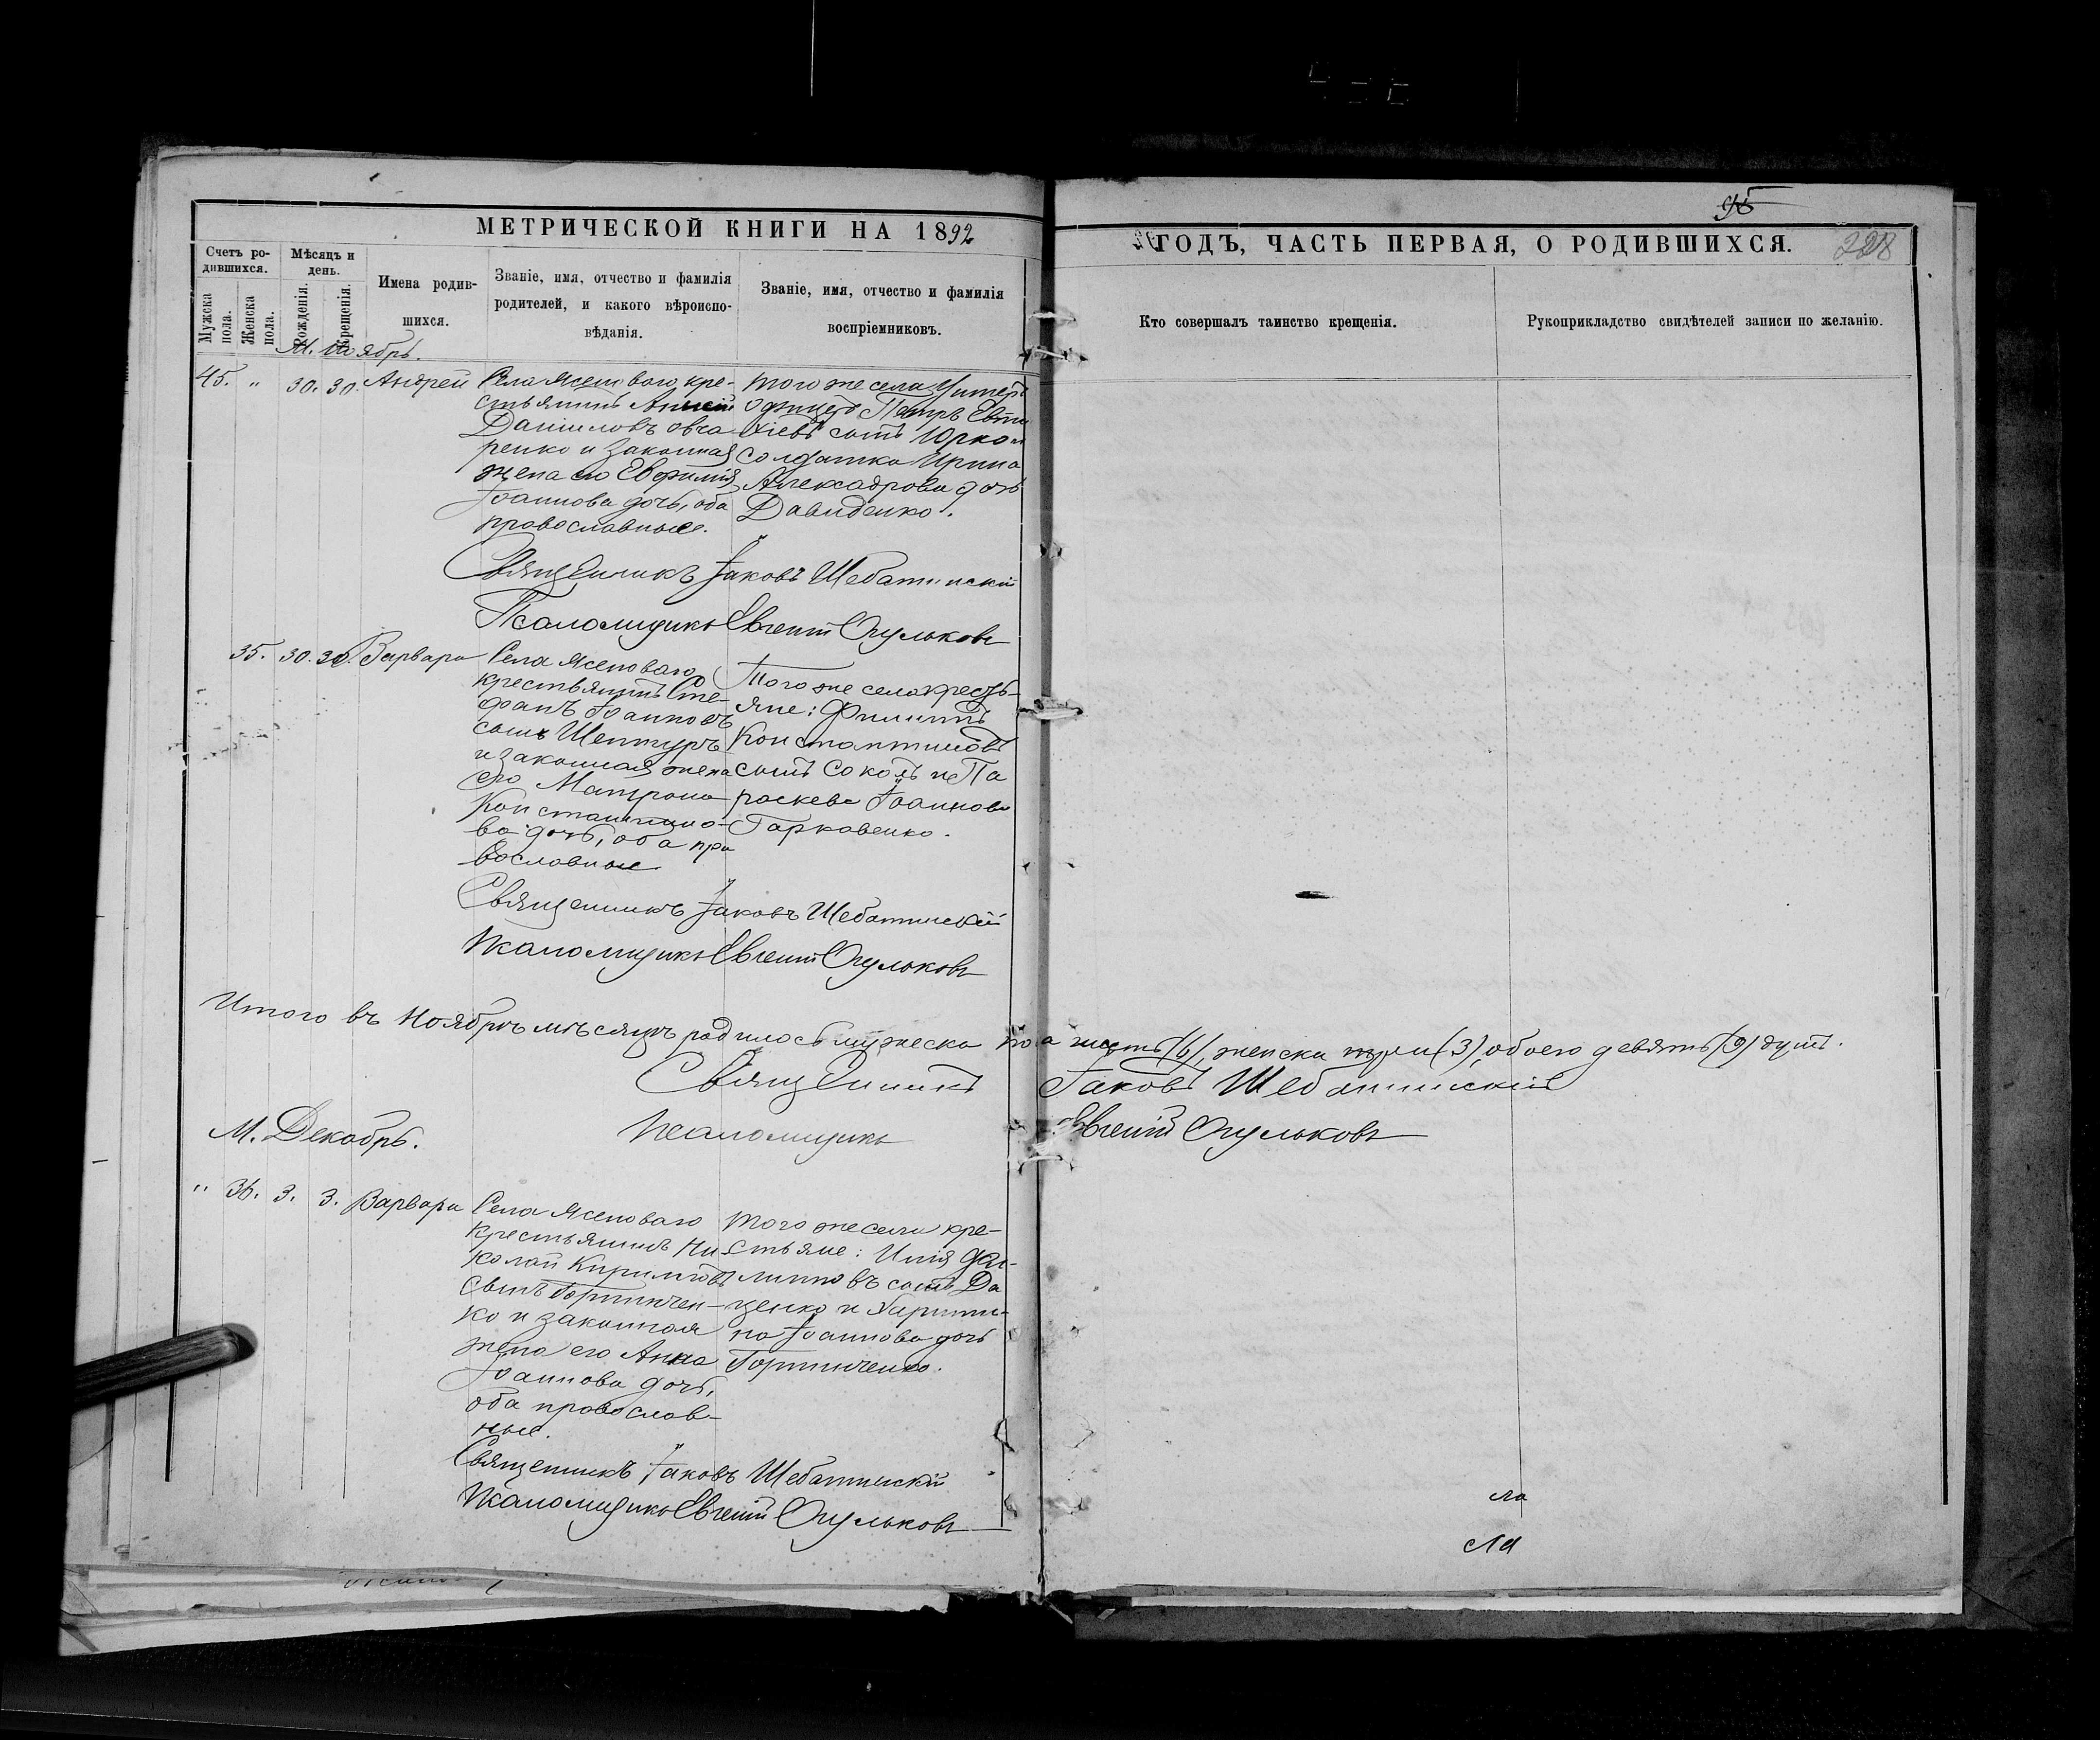 95
МЕТРИЧЕСКОЙ КНИГИ НА 1892
ГОДЪ, ЧАСТЬ ПЕРВАЯ, О РОДИВШИХСЯ.
228
Счетъ ро-
дившихся.
Мужска пола.
Женска пола.
Мѣсяцъ и
день.
Рожденія.
Крещенія.
Имена родив-
шихся.
Званіе, имя, отчество и фамилія
родителей, и какого вѣроиспо-
вѣданія.
Званіе, имя, отчество и фамилія
воспріемниковъ.
Кто совершалъ таинство крещенія.
Рукоприкладство свидѣтелей записи по желанію.
М. Ноябрь.
45. " 30. 30. Андрей
Села Ясеноваго, кре-
стьянинъ
Даниловъ Овча
ренко и законная
жена его Евфимія
Іоаннова дочь, оба
православные.
того же села Унтеръ
Офицеръ Петръ Евти
хіевъ сынъ Юрко и
солдатка Ирина
Алексадрова дочь
Давиденко.
Священникъ Іаковъ Шебатинскій
Псаломщикъ Евгеній Огульковъ
35. 30. 30. Варвара
Села Ясеноваго
крестьянинъ Сте-
фанъ Іоанновъ
сынъ Шептуръ
и законная жена
его Матрона
Константино-
ва дочь, оба пра
вославные
Того же села кресть-
яне: Филиппъ
Константиновъ
сынъ Соколъ и Па
раскева Іоаннова
Гарковенко.
Священникъ Іаковъ Шебатинскій
Псаломщикъ Евгеній Огульковъ
Итого въ Ноябрѣ мѣсяцѣ родилось мужеска пола шесть (6), женска три (3), обоего девять (9) душъ.
Священникъ Іаковъ Шебатинскій
Псаломщикъ Евгеній Огульковъ
М. Декабрь.
" 36. 3. 3. Варвара
Села Ясеноваго
крестьянинъ Ни-
колай Кириловъ
сынъ Гортинчен-
ко и законная
жена его Анна
Іоаннова дочь,
оба православ-
ные.
того же села кре-
стьяне: Илія Фи-
липповъ сынъ Да
ценко и Харити-
на Іоаннова дочь
Гортинченко.
Священникъ Іаковъ Шебатинскій
Псаломщикъ Евгеній Огульковъ
ла
ла